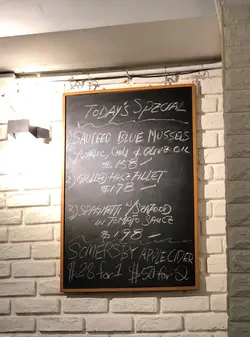 TODAY'S SPECIAL
1) SAUTEED BLUE MUSSELS
W/ GARLIC, CHILI & OLIVE OIL
$158
2) GRILLED FILLET
$178
3) SPAGHETTI W/ SEAFOOD
IN TOMATO SAUCE
$198
SOMERSBY APPLE CIDER
$28 for 1 $50 for 2